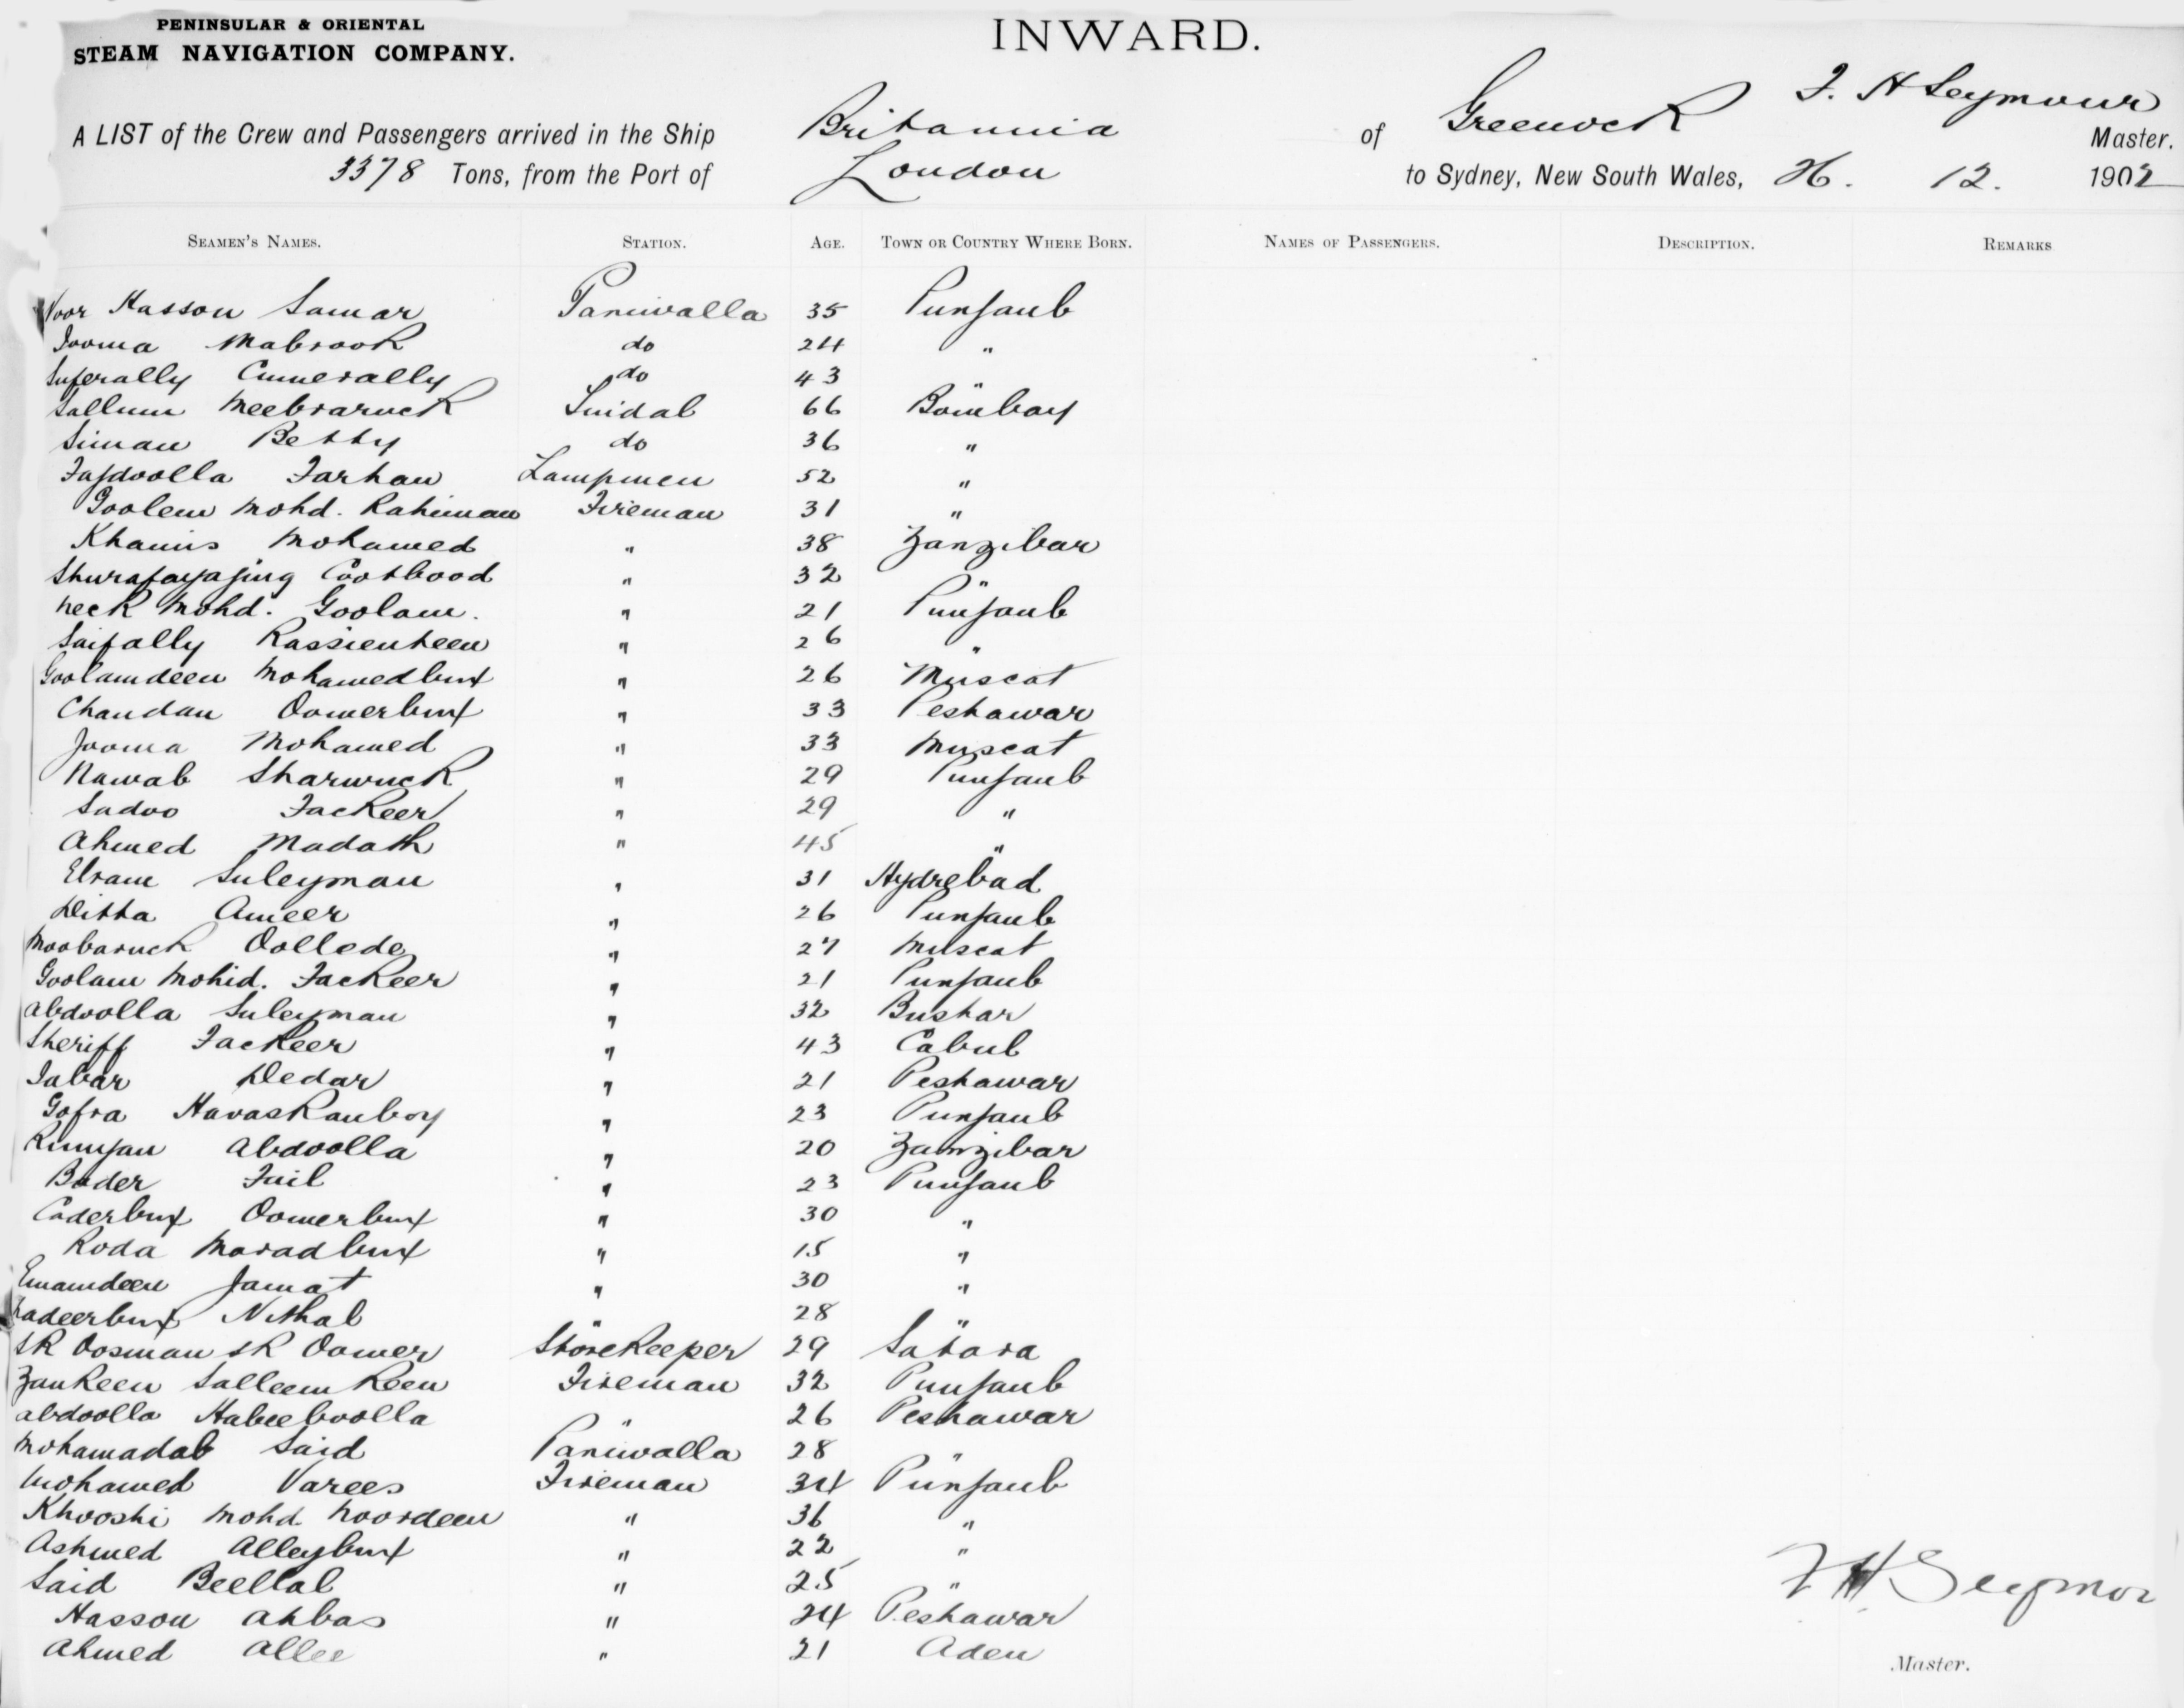 PENINSULAR & ORIENTAL
STEAM NAVIGATION COMPANY.
INWARD.
A LIST of the Crew and Passengers arrived in the Ship Britannia of Greenock F. H Seymour Master.
3378 Tons, from the Port of London to Sydney, New South Wales, 26. 12. 1902
SEAMEN'S NAMES. STATION. AGE. TOWN OR COUNTRY WHERE BORN. NAMES OF PASSENGERS. DESCRIPTION. REMARKS
Noor Hasson Samar Paniwalla 35 Punjaub
Jooma Mabrook do 24 "
Cumerally do 43 "
Sallum Meebraruck Suidal 66 Bombay
Siman Betty do 36 "
Farhan Lampmen 52 "
Goolem Mohd. Rahiman Fireman 31 "
Khamis Mohamed " 38 Zanzibar
Cootbood " 32 "
Neck Mohd. Goolam. " 21 Punjaub
Saifally Rassienteen " 26 "
Goolamdeen Mohamedbux " 26 Muscat
Chandan Oomerbux " 33 Peshawar
Jooma Mohamed " 33 Muscat
Nawab Sharwuck " 29 Punjaub
Sadoo Fackeer " 29 "
Ahmed Madath " 45 "
Ebram Suleyman " 31 Hydrebad
Ditta Ameer " 26 Punjaub
Moobaruck Oollede " 27 Muscat
Goolam Mohid. Fackeer " 21 Punjaub
Abdoolla Suleyman " 32 Bushar
Sheriff Fackeer " 43 Cabul
Jabar Dedar " 21 Peshawar
Gofra Havaskanboy " 23 Punjaub
Rumjan Abdoolla " 20 Zanzibar
Bader Fail " 23 Punjaub
Caderbux Oomerbux " 30 "
Roda Moradbux " 15 "
Emamdeen Jamat " 30 "
Kadeerbux Nathal " 28 "
SK Oosman SK Oomer Storekeeper 29 Satara
Zankeen Salleemkeen Fireman 32 Punjaub
Abdoolla Habeeboolla " 26 Peshawar
Mohamadab Said Paniwalla 28 "
Mohamed Varees Fireman 34 Punjaub
Khooshi Mohd. Noordeen " 36 "
Ashmed Alleybux " 22 "
Said Beellal " 25 "
Hasson Abbas " 24 Peshawar
Ahmed Allee " 21 Aden
F H Seymour
Master.